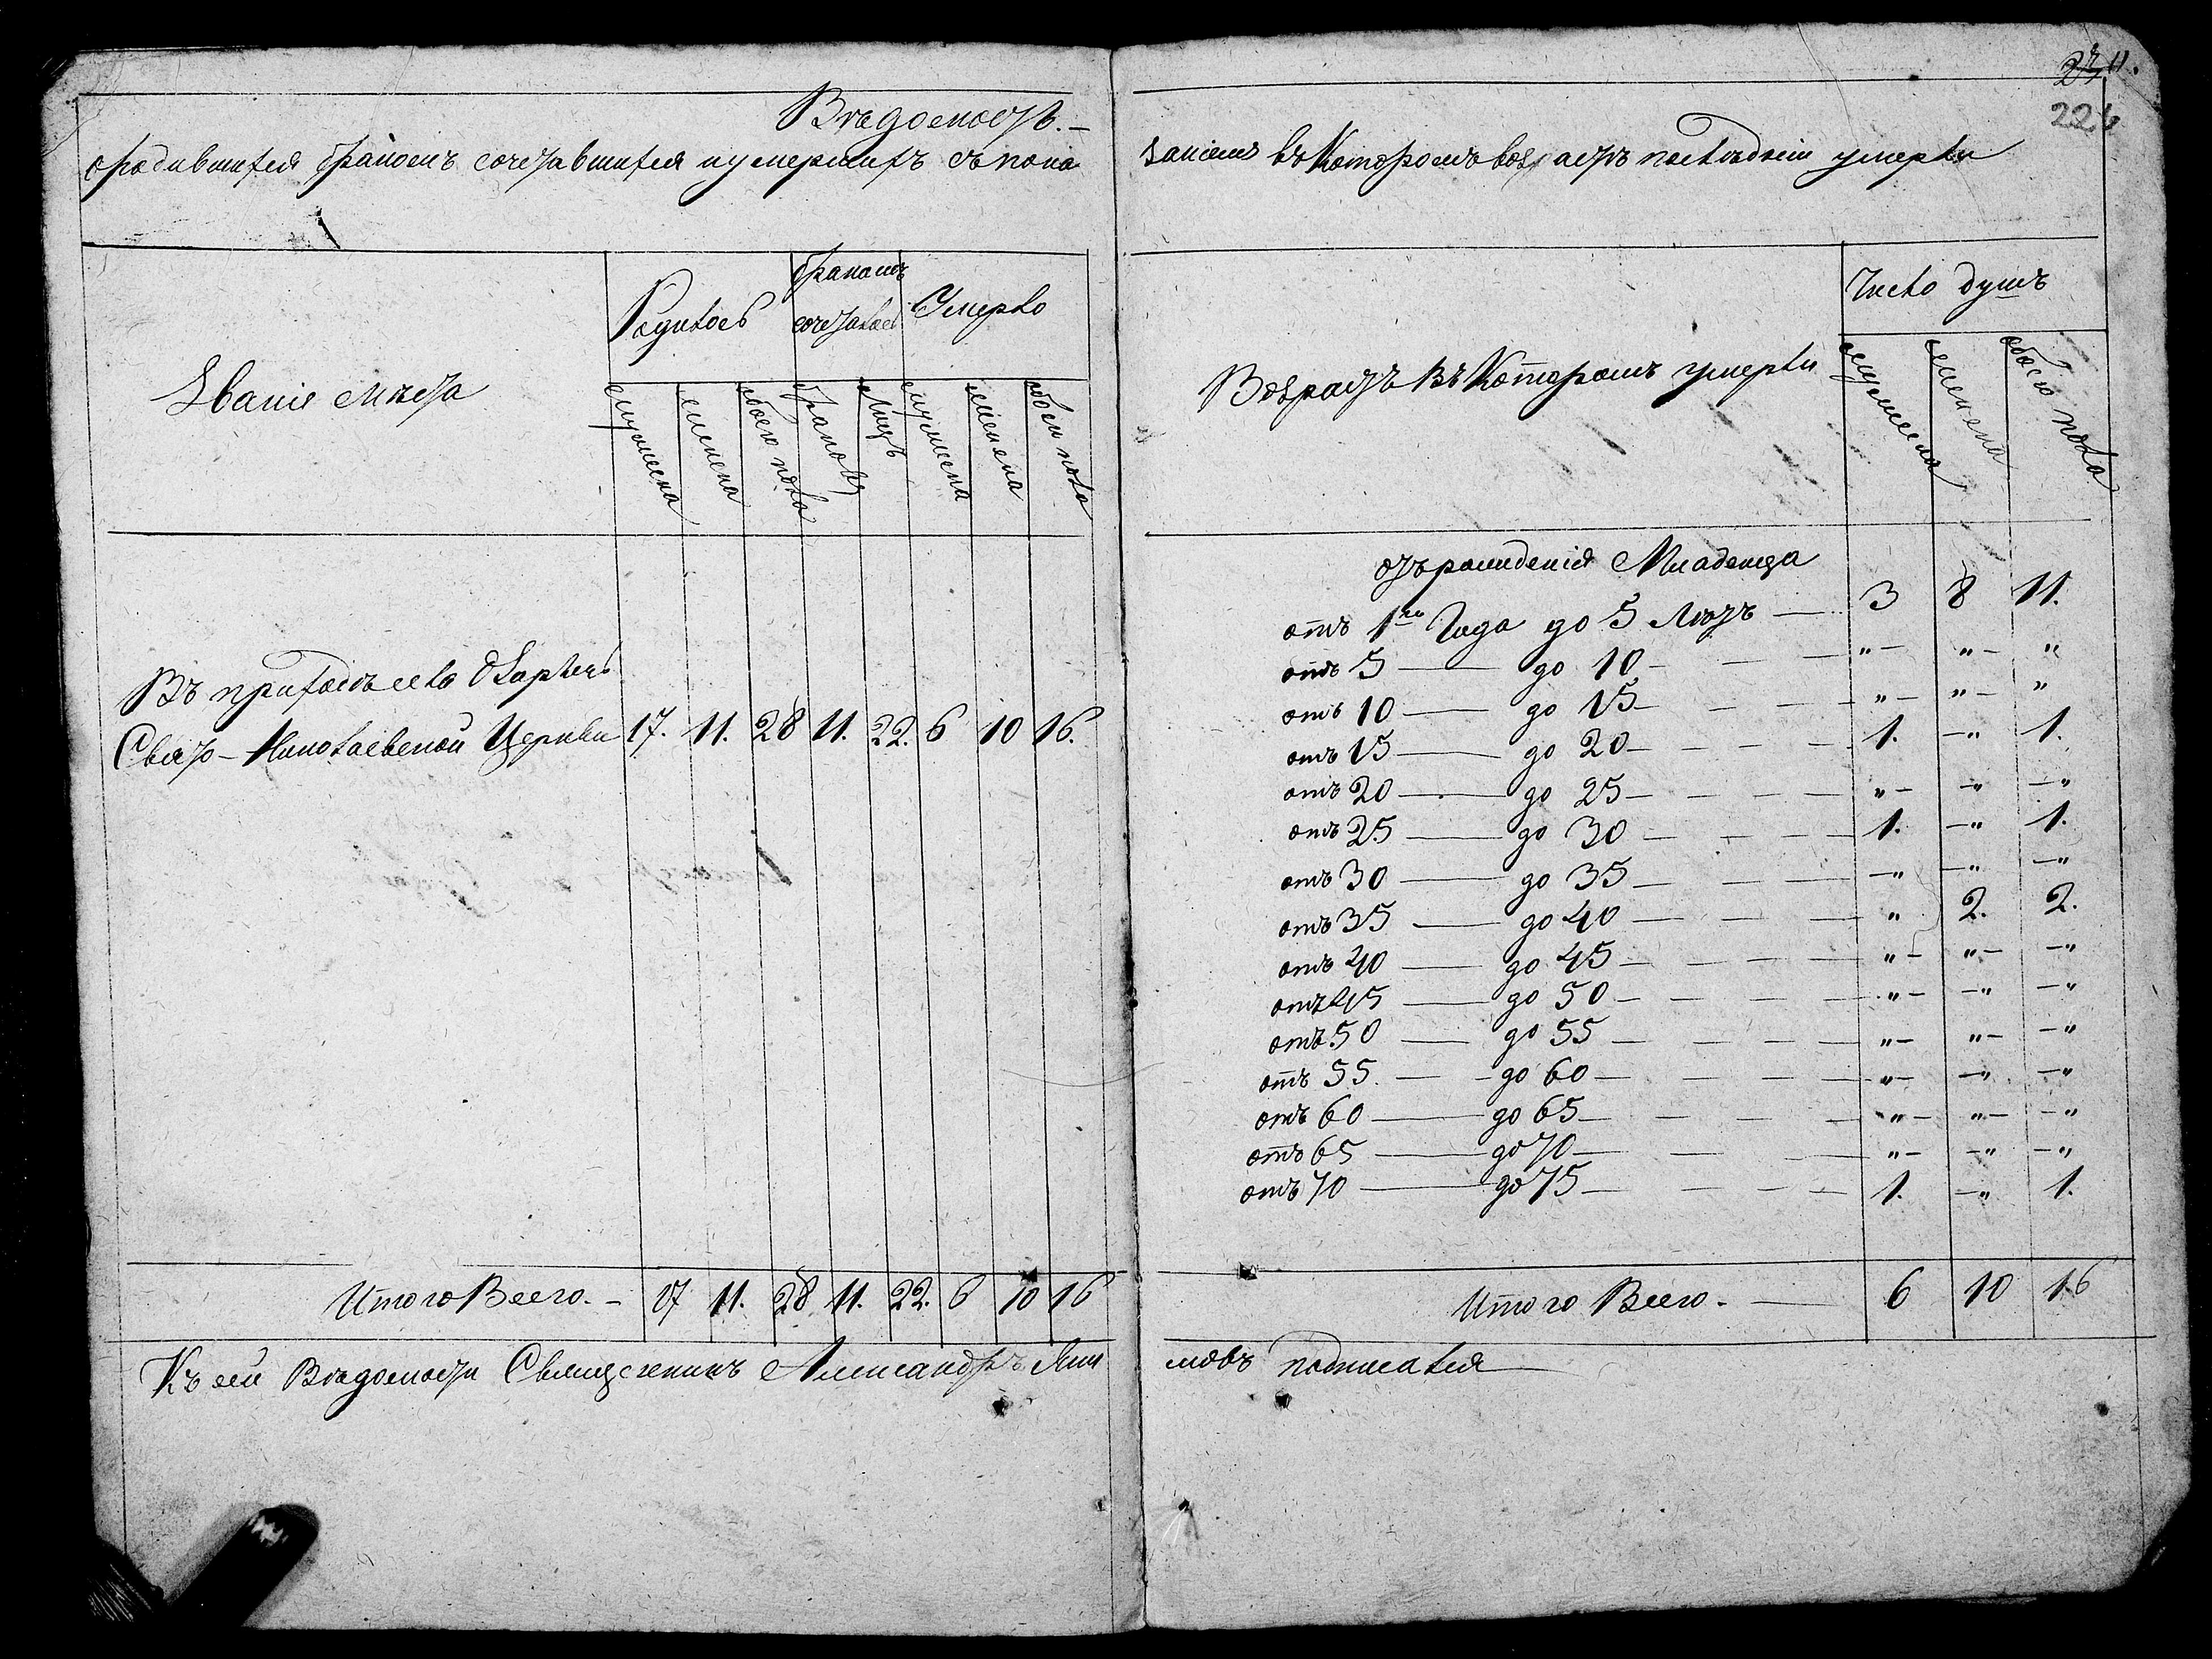 Вѣдомость.
о родившихся бракомъ сочетавшихся и умершихъ съ пока
Званіе мѣста
Родилось
бракомъ сочеталось
Умерло
мужеска
женска
обоего пола
браковъ
лицъ
мужеска
женска
обоего пола
Въ приходѣ села
Свято-Николаевской Церкви 17. 11. 28 11. 22. 6 10 16.
Итого Всего. 17 11. 28 11. 22. 6 10 16
Къ сей Вѣдомости Священникъ Александръ
11.
226
заніемъ въ Которомъ возрастѣ послѣдніи умерли
Возрастъ въ Которомъ умерли
Число душъ
мужеска
женска
обоего пола
отъ рожденія Младенца
отъ 1го Года до 5 Лѣтъ 3 8 11.
отъ 5 до 10 " " "
отъ 10 до 15 " " "
отъ 15 до 20 1. " 1.
отъ 20 до 25 " " "
отъ 25 до 30 1. " 1.
отъ 30 до 35 " " "
отъ 35 до 40 " 2. 2.
отъ 40 до 45 " " "
отъ 45 до 50 " " "
отъ 50 до 55 " " "
отъ 55 до 60 " " "
отъ 60 до 65 " " "
отъ 65 до 70 " " "
отъ 70 до 75 1. " 1.
Итого Всего. 6 10 16
подписался